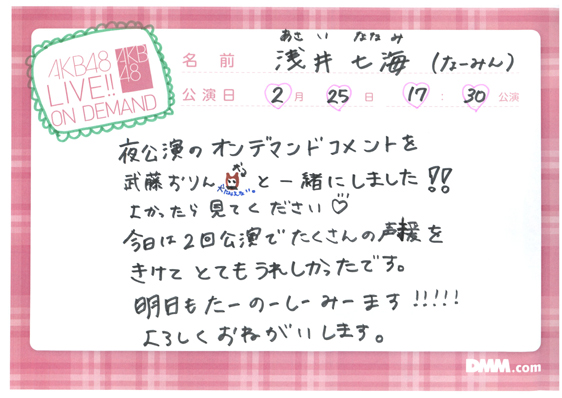 AKB48
LIVE!!
ON DEMAND
AKB
48
あさ い ななみ
名前 浅井七海 (なーみん)
公演日 2月 25日 17:30公演
夜公演のオンデマンドコメントを
武藤おりん と一緒にしました!!
よかったら見てください♡
今日は2回公演でたくさんの声援を
きけてとてもうれしかったです。
明日もたーのーしーみーます!!!!!
よろしくおねがいします。
DMM.com